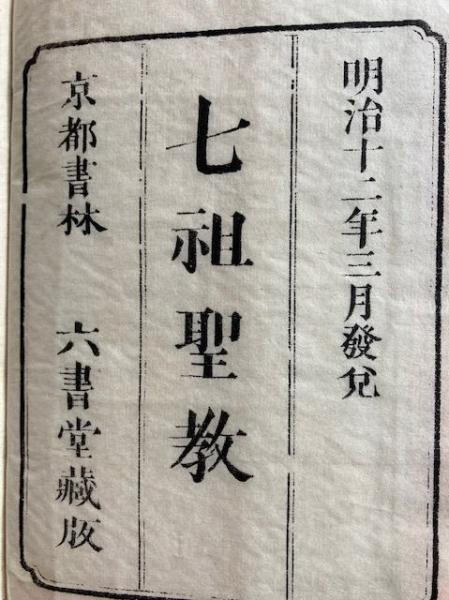 明治十二年三月發兌
七祖聖教
京都書林 六書堂藏版